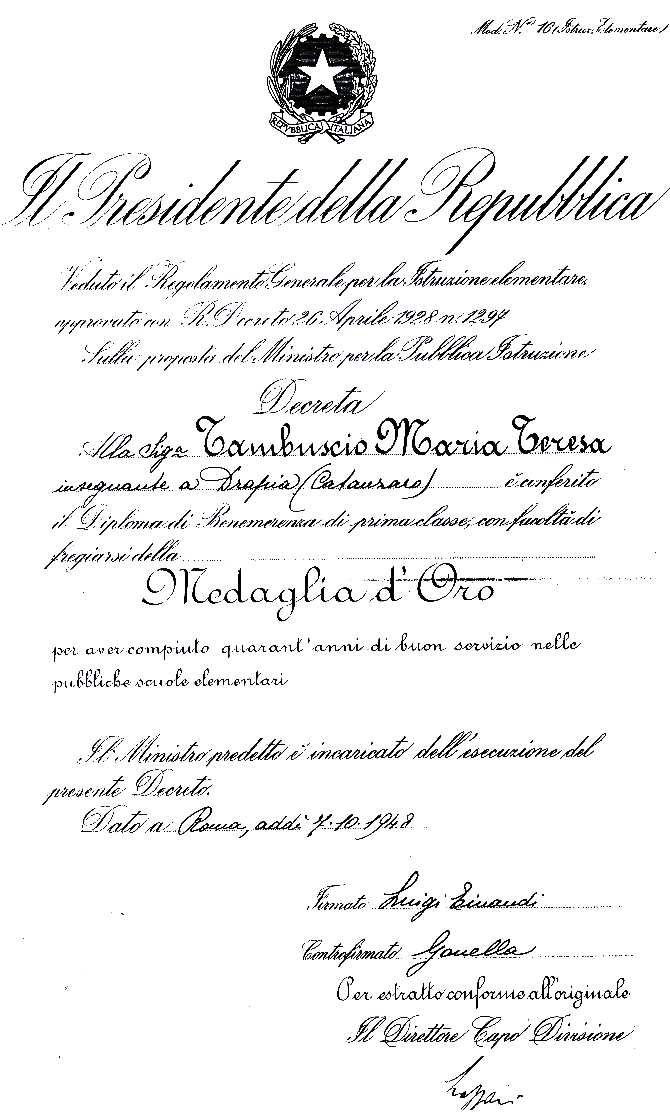 Mod. N.º 10 (Istruz. Elementare)
REPVBBLICA ITALIANA
Il Presidente della Repubblica
Veduto il Regolamento Generale per la Istruzione elementare,
approvato con R. Decreto 26 Aprile 1928 n. 1297
Sulla proposta del Ministro per la Pubblica Istruzione
Decreta
Alla Sigª Tambuscio Maria Teresa
insegnante a Drapia (Catanzaro) è conferito
il Diploma di Benemerenza di prima classe, con facoltà di
fregiarsi della
Medaglia d'Oro
per aver compiuto quarant'anni di buon servizio nelle
pubbliche scuole elementari
Il Ministro predetto è incaricato dell'esecuzione del
presente Decreto.
Dato a Roma, addì 7.10.1948
Firmato Luigi Einaudi
Controfirmato Gonella
Per estratto conforme all'originale
Il Direttore Capo Divisione